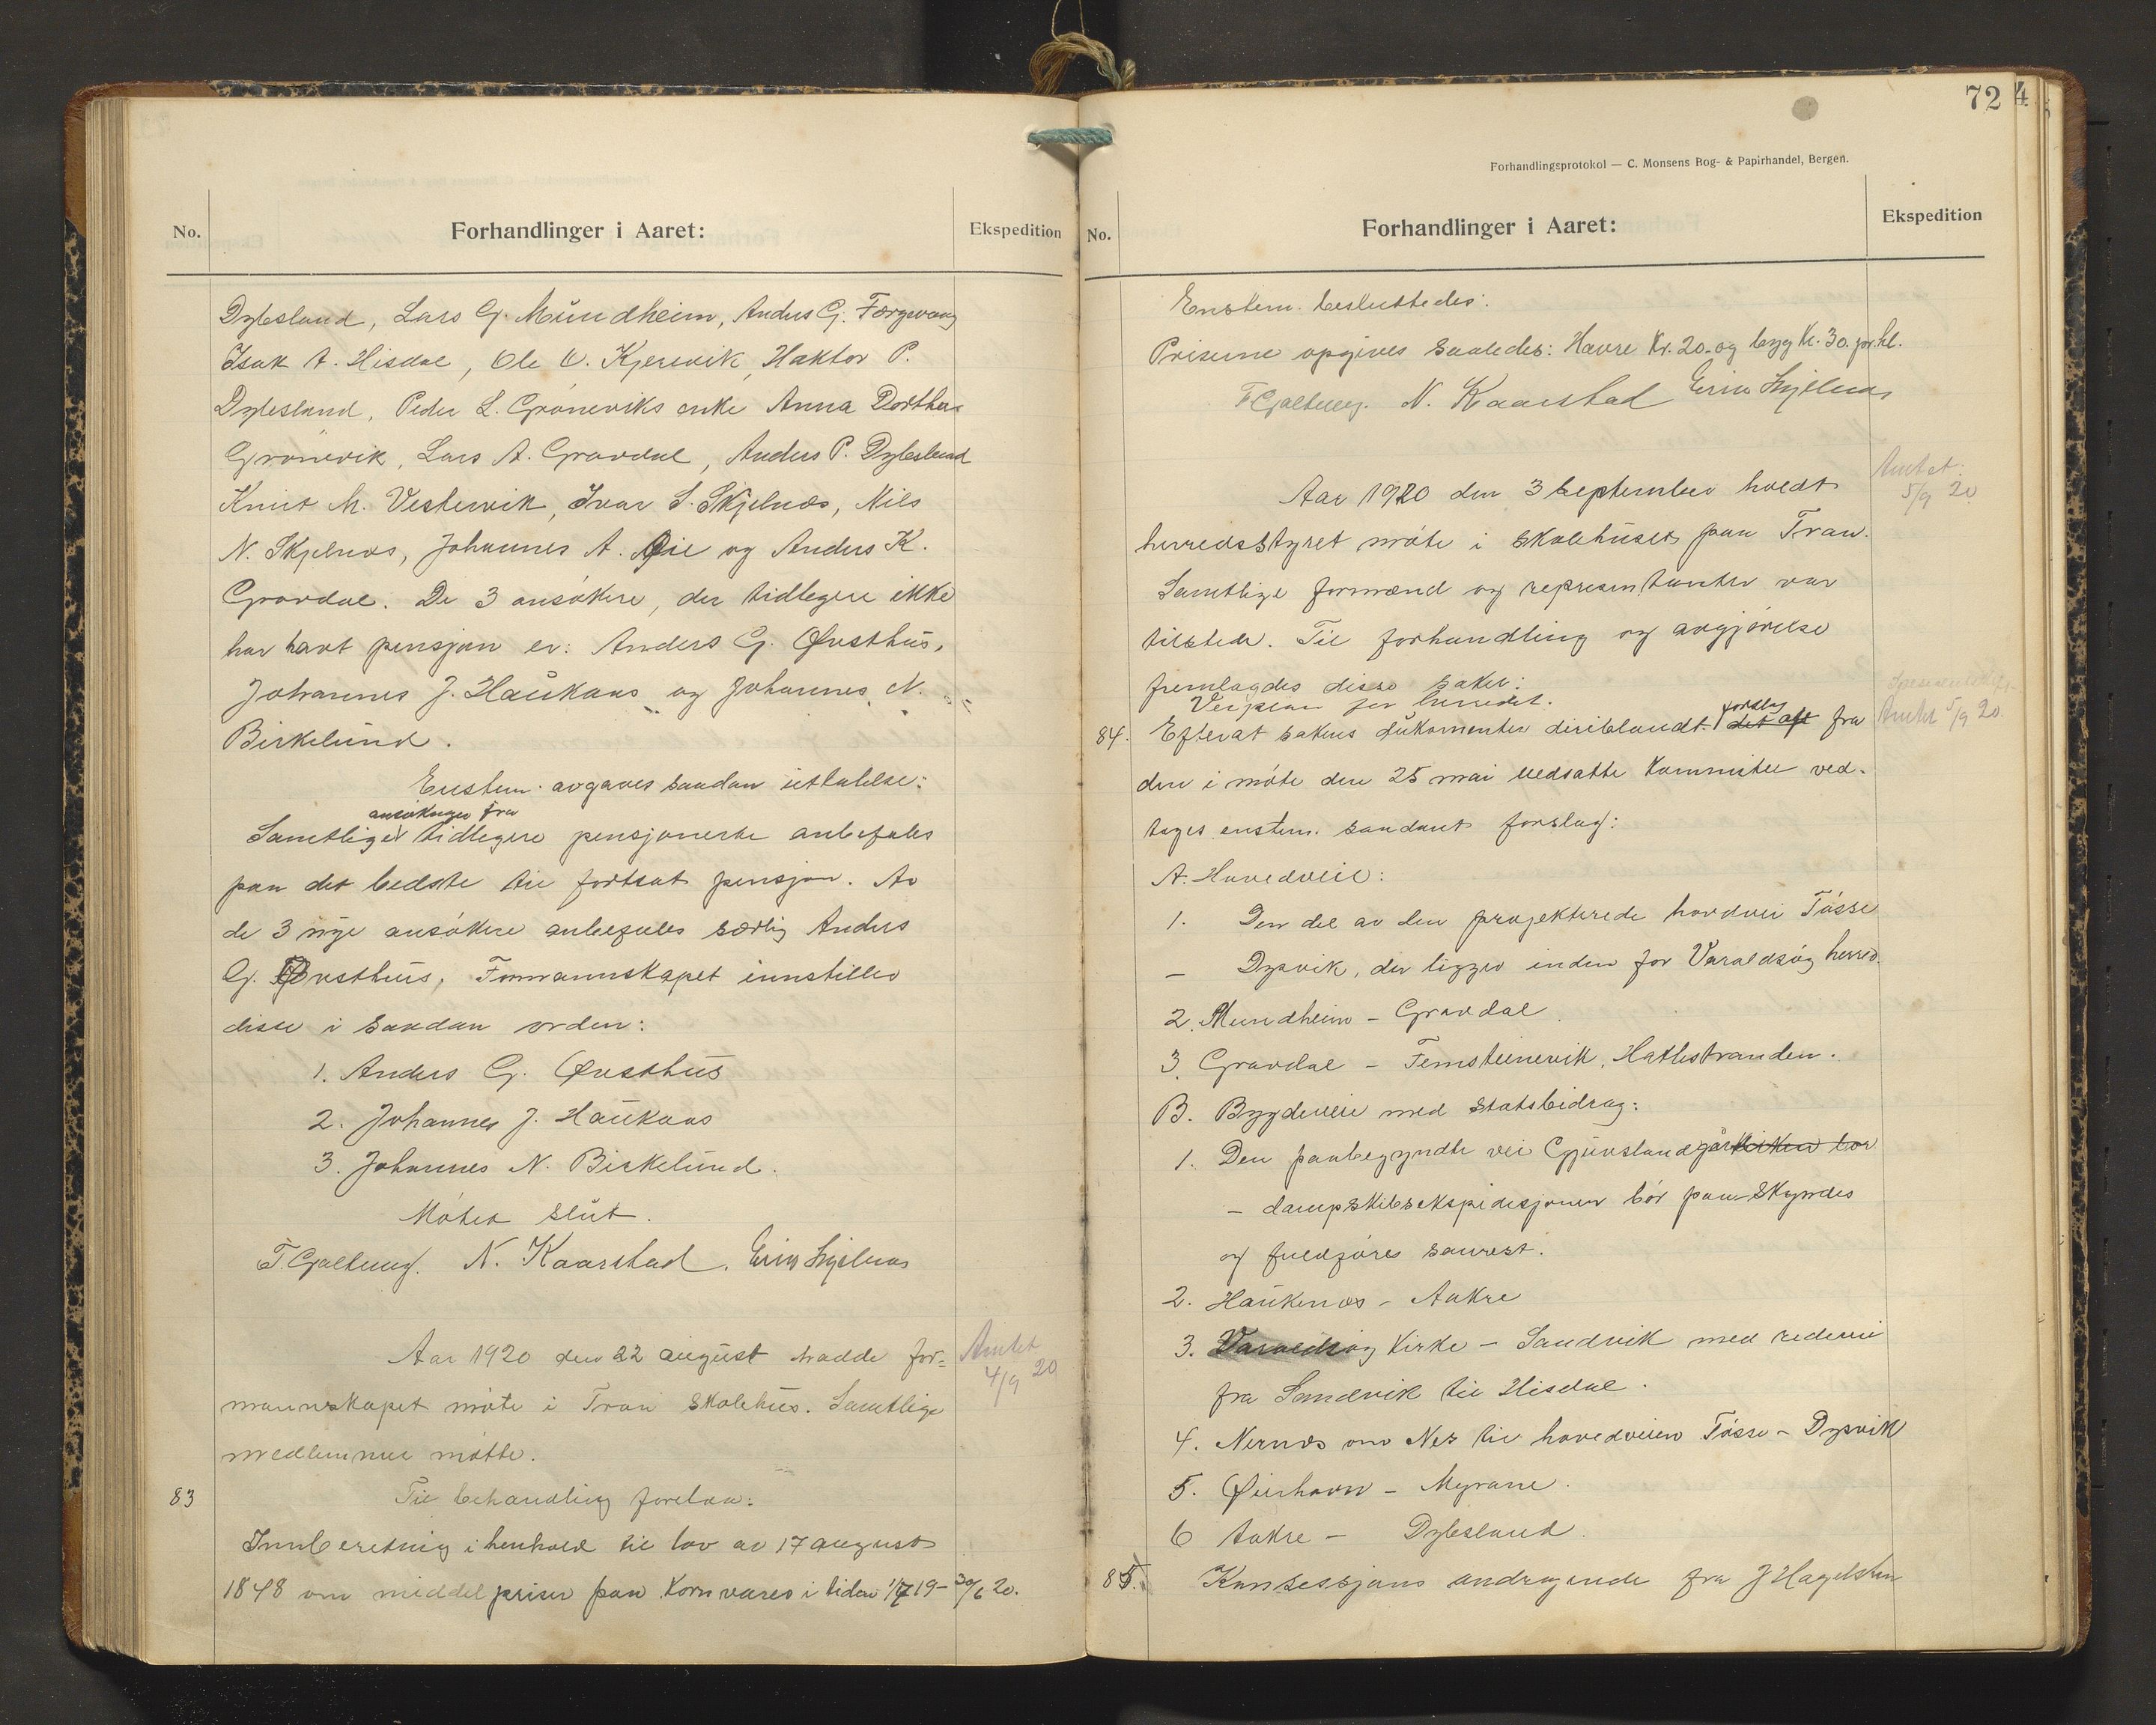 No.
Forhandlinger i Aaret:
Ekspedition
Dybsland, Lars G. Mundheim, Anders G. Færgevaag
Isak A. Hisdal, Ole O. Kjerevik, Haktor P.
Dybsland, Peder L. Grøneviks enke Anna Dorthea
Grønevik, Lars A. Gravdal, Anders P. Dybsland
Knut M. Vestervik, Ivar S. Skjelnæs, Nils
N. Skjelnæs, Johannes A. Øie og Anders K.
Gravdal. De 3 ansøkere, der tidlegere ikke
har havt pensjon er: Anders G. Øvsthus,
Johannes J. Haukaas og Johannes N.
Birkelund.
Enstem. avgaves saadan uttalelse:
ansøkninger fra
Samtlige tidlegere pensjonerte anbefales
paa det bedste til fortsat pensjon. Av
de 3 nye ansøkere anbefales særlig Anders
G. Øvsthus, Formannskapet innstiller
disse i saadan orden:
1. Anders G. Øvsthus
2. Johannes J. Haukaas
3. Johannes N. Birkelund.
Møtet slut.
T. Galtung. N. Kaarstad. Erik Skjelnæs
Aar 1920 den 22 august hadde for=
mannskapet møte i Traa skolehus. Samtlige
medlemmer møtte.
Amtet
4/9 20
83
Til behandling forelaa:
Innberetning i henhold til lov av 17 august
1848 om middelpriser paa kornvarer i tiden 1/7 19 - 30/6 20.
72
4
Forhandlingsprotokol — C. Monsens Bog- & Papirhandel, Bergen.
No.
Forhandlinger i Aaret:
Ekspedition
Enstem. besluttedes:
Priserne opgives saaledes: Havre Kr. 20.- og byg Kr. 30. pr. hl.
T Galtung. N. Kaarstad Erik Skjelnæs
Aar 1920 den 3 september holdt
Amtet.
5/9 20
herredsstyret møte i skolehuset paa Traa.
Samtlige formænd og representanter var
tilstede. Til forhandling og avgjørelse
fremlagdes disse saker:
Veiplan for herredet.
forslag
84. Efterat sakens dukomenter deriblandt det aft fra
Amtet 5/9 20.
den i møte den 25 mai nedsatte kommitee ved-
toges enstem. saadant forslag:
A. Hovedveie:
1. Den del av den projekterede hovdvei Tøsse
- Dysvik, der ligger inden for Varaldsøy herred.
2. Mundheim - Gravdal.
3. Gravdal - Femsteinevik, Hatlestranden.
B. Bygdeveie med statsbidrag:
1. Den paabegyndte vei Gjuvslandgår kirken bør
- dampskibsekspedisjonen bør paaskyndes
og fuldføres snarest.
2. Haukenæs - Aakre
3. Varaldsøy kirke - Sandvik med redevei
fra Sandvik til Hisdal.
4. Nernæs om Nes til hovedveien Tøsse - Dysvik
5. Øierhavn - Myrane.
6 Aakre - Dybsland.
85. Konsessjons andragende fra J Hagelsten